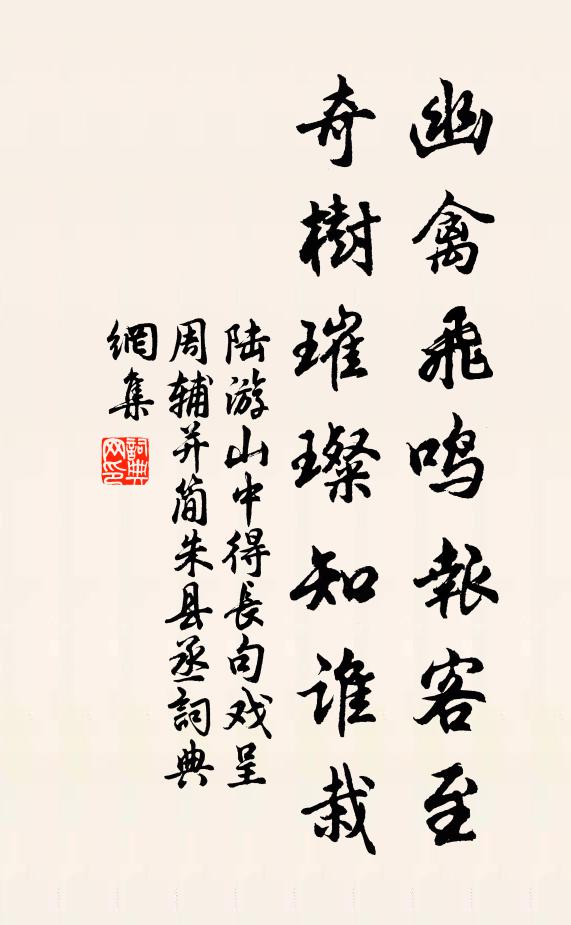 幽禽飛鸣報客至
奇樹璀璨知谁栽
陆游山中得長句戏呈
周辅并简朱县丞詞典
網集
詞典
网印